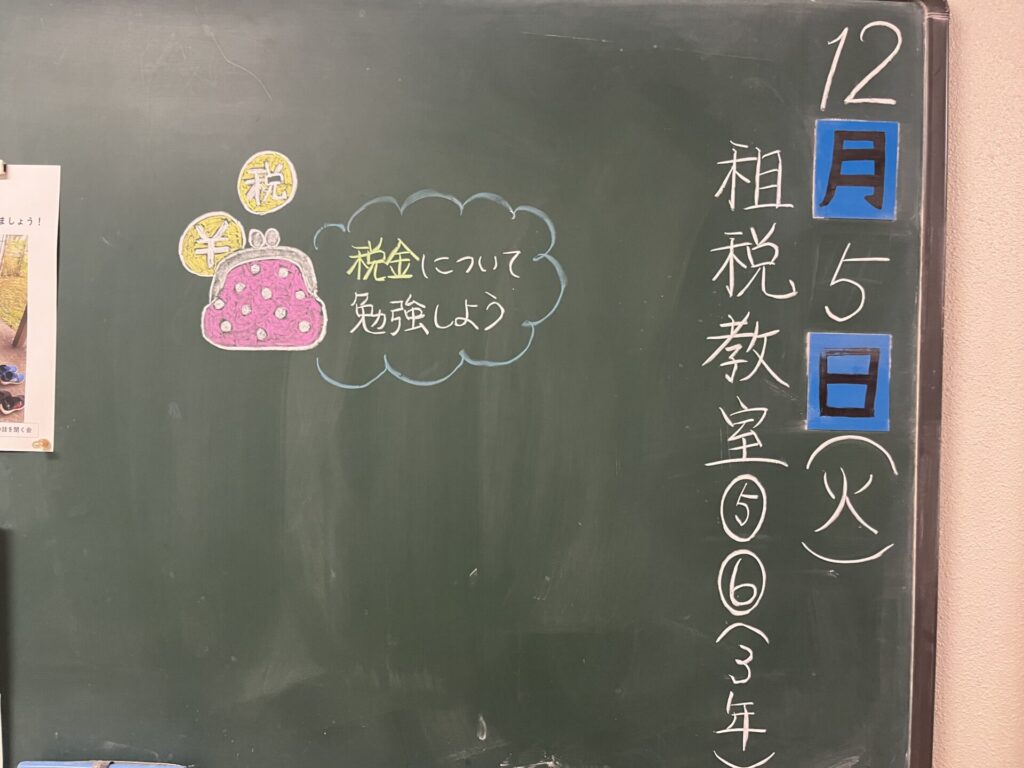 12月5日(火)
租税教室⑤⑥(3年)
税
¥
税金について
勉強しよう
ましょう!